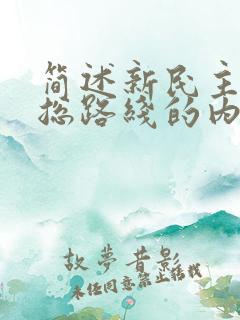 简述新民主
总路线的内
故夢昔影
未经同意禁止转载